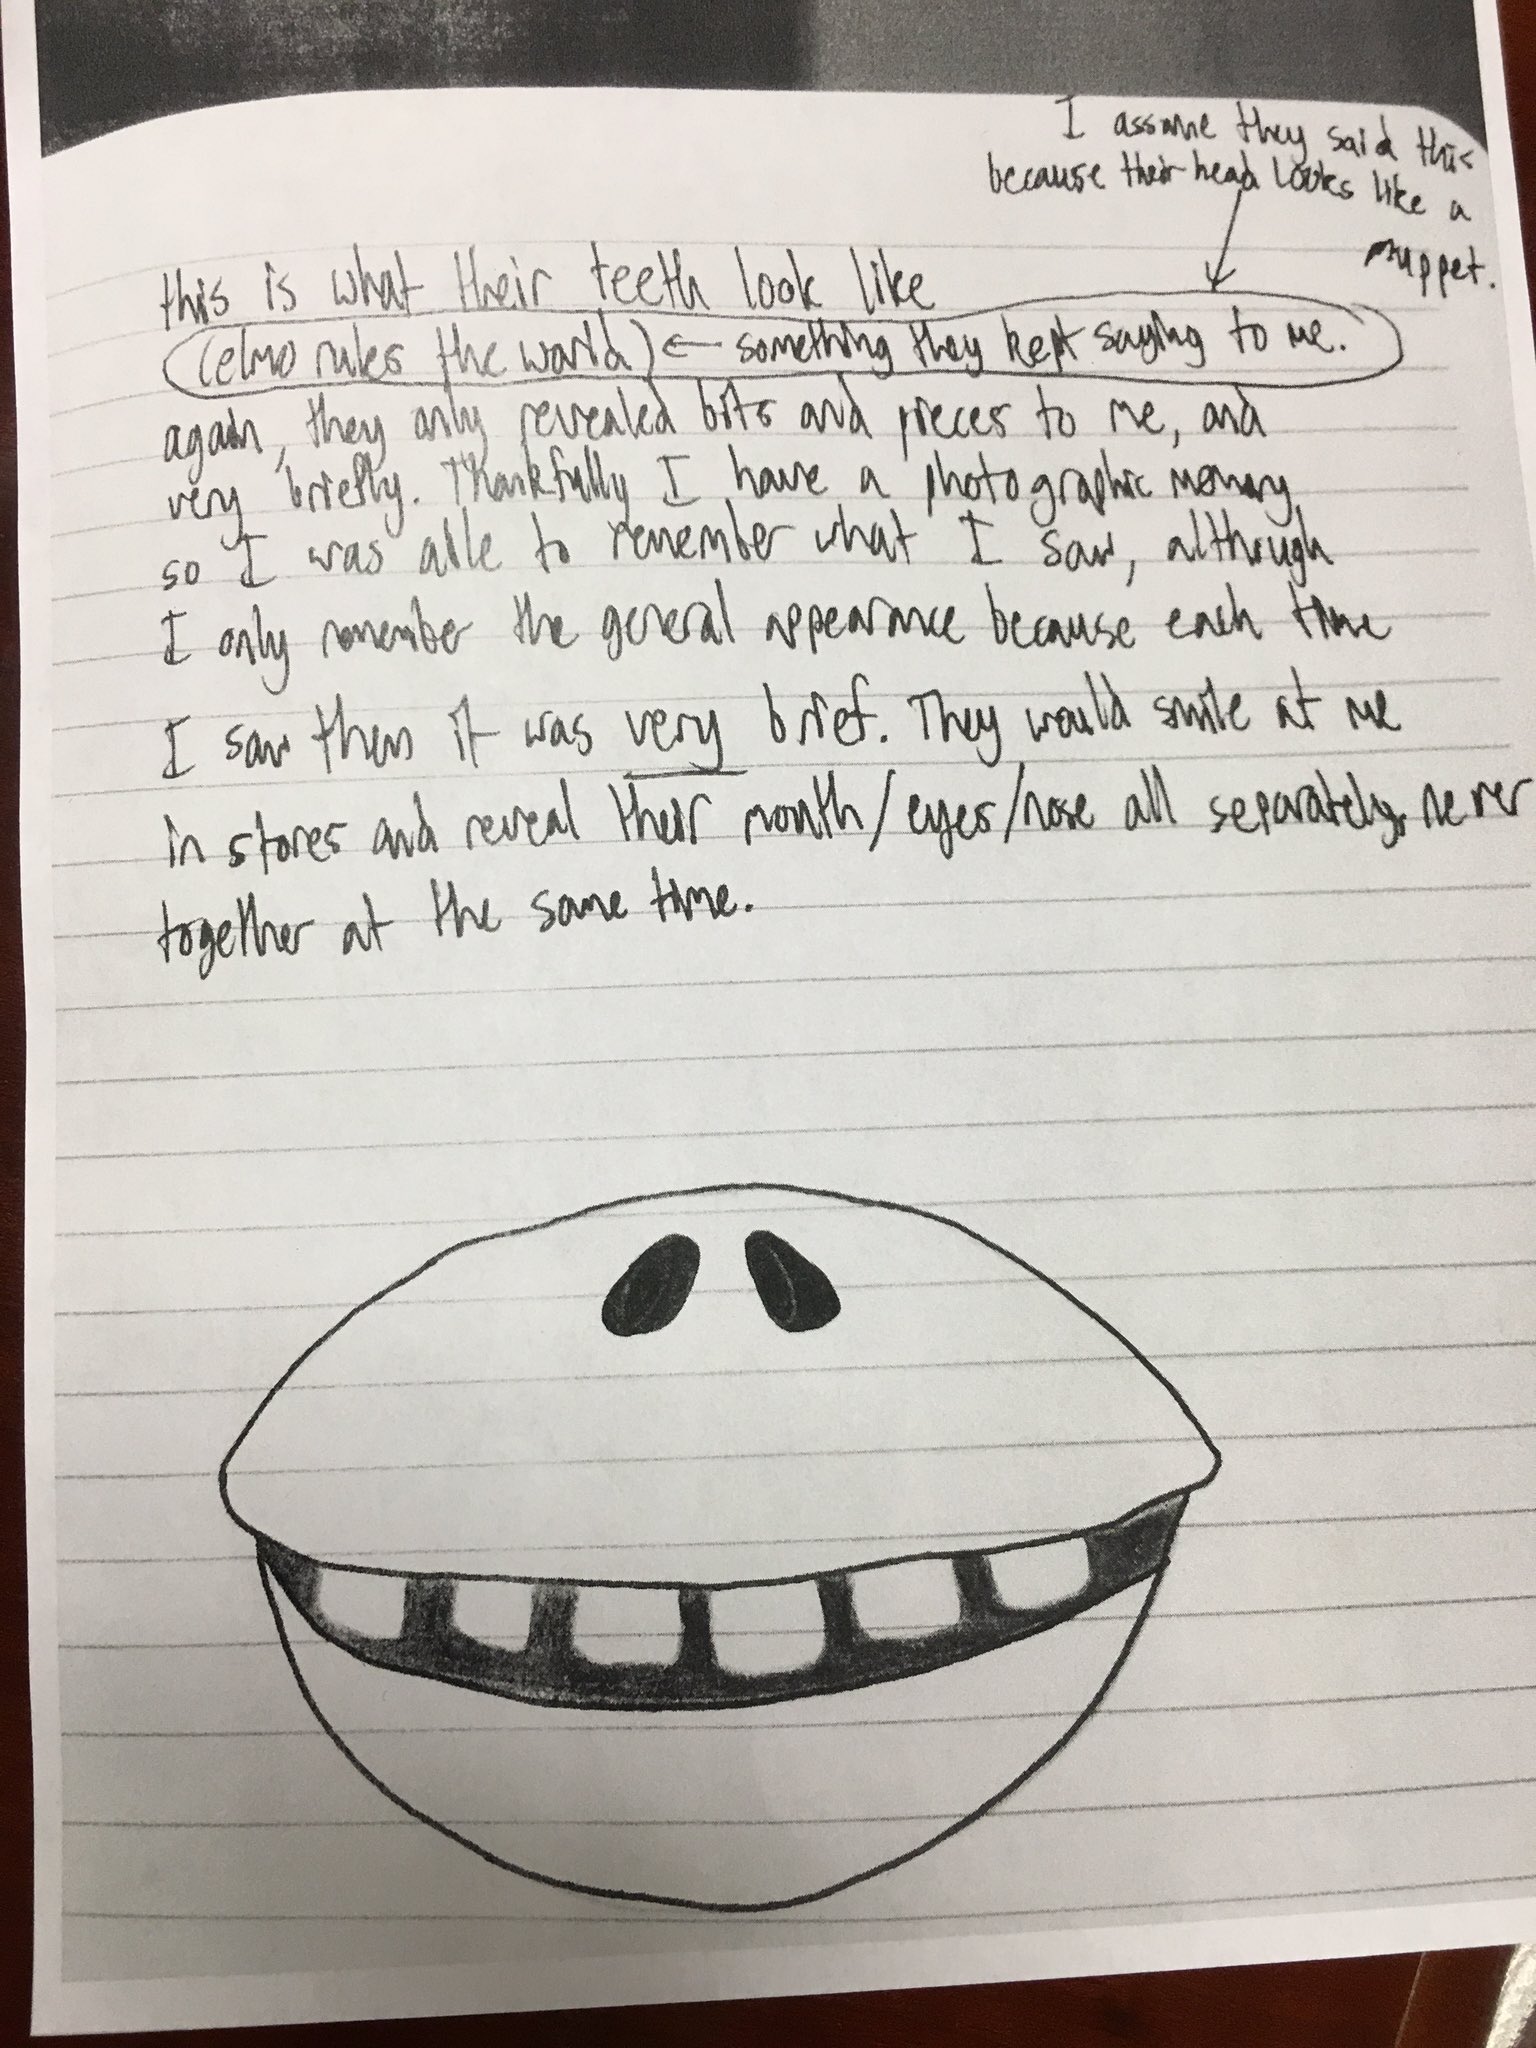 I assume they said this
because their head looks like a
muppet.
this is what their teeth look like
(elmo rules the world) ← something they kept saying to me.
again, they only revealed bits and pieces to me, and
very briefly. Thankfully I have a photographic memory
so I was able to remember what I saw, although
I only remember the general appearance because each time
I saw them it was very brief. They would smile at me
in stores and reveal their mouth/eyes/nose all separately, never
together at the same time.